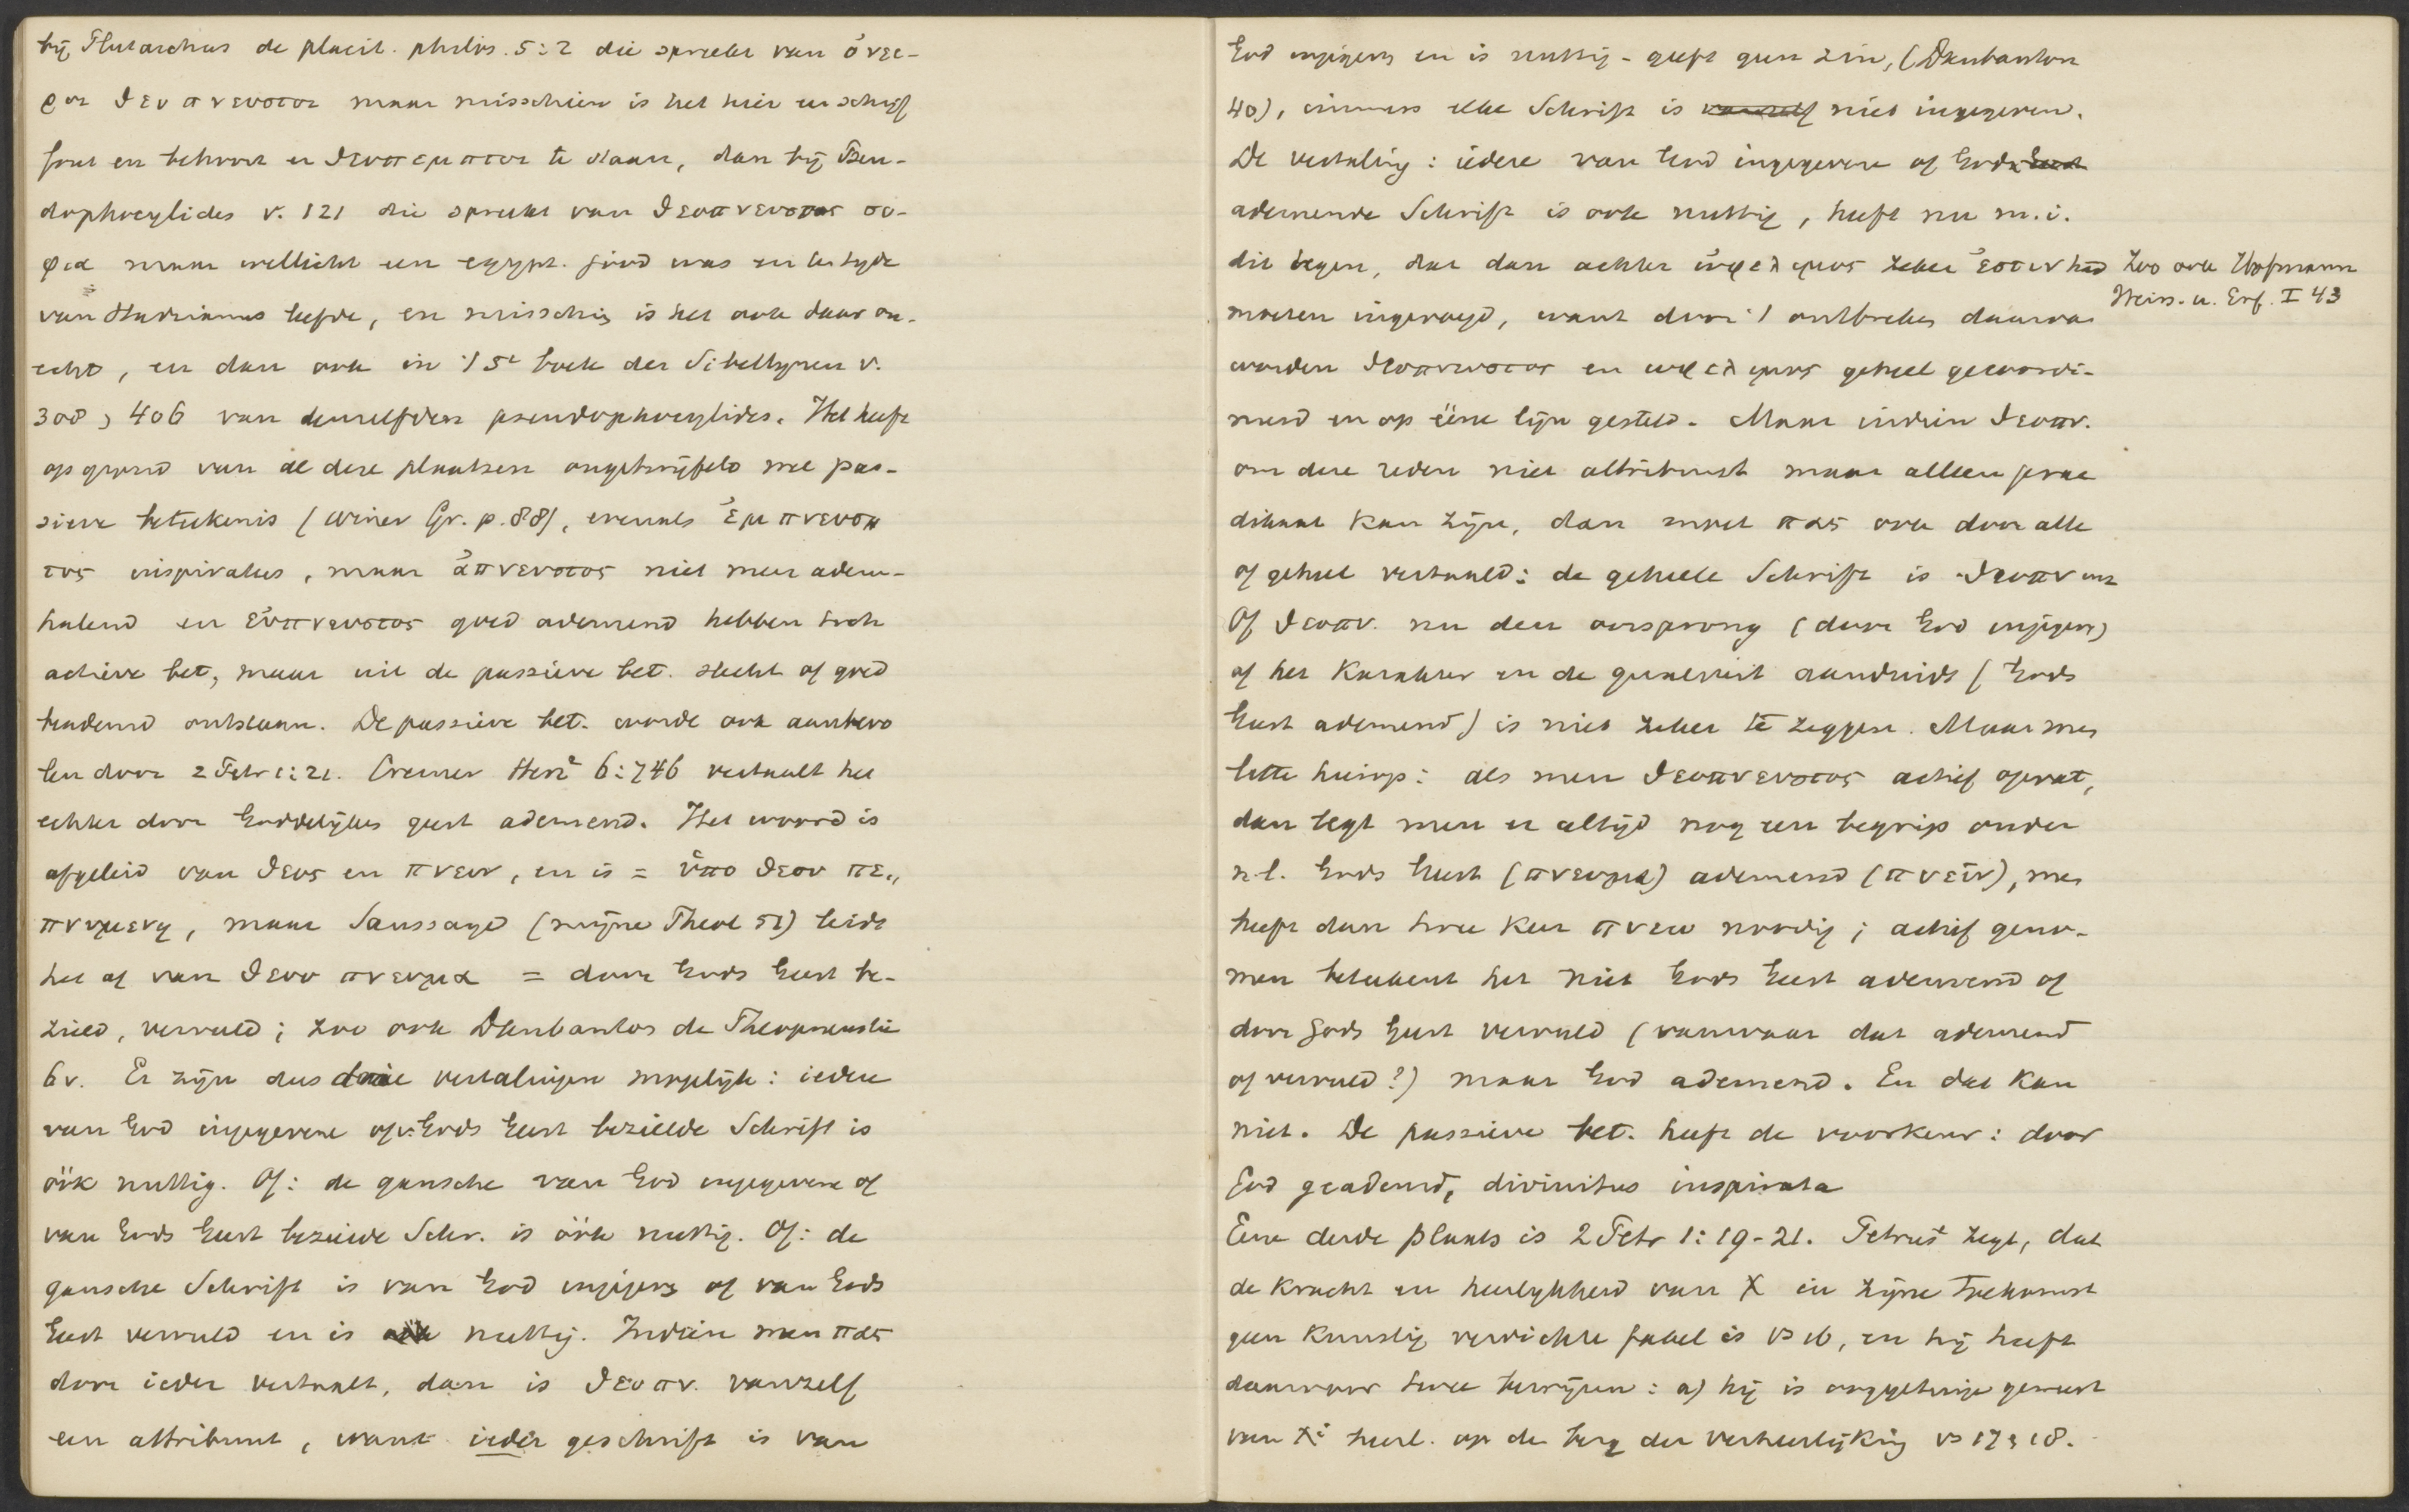 bij Plutarchus de placit. philos. 5:2 die spreekt van ὀνει-
ρον θεοπνευστον maar misschien is het hier een schrijf
fout en behoort er θεοπεμπτον te staan, dan bij Pseu-
dophocylides v. 121 die spreekt van θεοπνευστος σο-
φια maar wellicht een egypt. jood was en ten tijde
van Hadrianus leefde, en misschien is het ook daar on-
echt, en dan ook in 't 5e boek der Sibellynen v.
308, 406 van denzelfden pseudophocylides. Het heeft
op grond van al deze plaatsen ongetwijfeld eene pas-
sieve beteekenis (Winer Gr. p. 88), evenals ἐμπνευσ
τος inspiratus, maar ἀπνευστος niet meer adem-
halend en εὐπνευστος goed ademend hebben toch
actieve bet, maar uit de passieve bet. slecht of goed
beademd ontstaan. De passieve bet. wordt ook aanbevo
len door 2 Petr 1:21. Cremer Herz² 6:746 vertaalt het
echter door Goddelijken geest ademend. Het woord is
afgeleid van θεος en πνειν, en is = ὑπο θεου πε..
πνυμενη, maar Saussaye (mijne Theol 51) leidt
het af van θεου πνευμα = door Gods Geest be-
zield, vervuld; zoo ook Daubanton de Theopneustie
6v. Er zijn dus drie vertalingen mogelijk: iedere
van God ingegevene of v. Gods Geest bezielde Schrift is
óók nuttig. Of: de gansche van God ingegevene of
van Gods Geest bezielde Schr. is óók nuttig. Of: de
gansche Schrift is van God ingegeven of van Gods
Geest vervuld en is ook nuttig. Indien men πας
door ieder vertaalt, dan is θεοπν. vanzelf
een attribuut, want ieder geschrift is van
God ingegeven en is nuttig - geeft geen zin, (Daubanton
40), immers elke Schrift is vanzelf niet ingegeven.
De vertaling: iedere van God ingegevene of Gods Geest
ademende Schrift is ook nuttig, heeft nu m.i.
dit tegen, dat dan achter ὠφελιμος zeker ἐστιν had
moeten ingevoegd, want door 't ontbreken daarvan
worden θεοπνευστος en ωφελιμος geheel gecoordi-
neerd en op ééne lijn gesteld. Maar indien θεοπν.
om deze reden niet attribuut maar alleen prae
dikaat kan zijn, dan moet πας ook door alle
of geheel vertaald: de geheele Schrift is θεοπνευς
Of θεοπν. nu den oorsprong (door God ingegeven)
of het karakter en de qualiteit aanduidt (Gods
Geest ademend) is niet zeker te zeggen. Maar men
lette hierop: als men θεοπνευστος actief opvat,
dan legt men er altijd nog een begrip onder
n.l. Gods Geest (πνευμα) ademend (πνεῖν), men
heeft dan twee keer πνεω noodig; actief geno-
men beteekent het niet Gods Geest ademend of
door Gods Geest vervuld (vanwaar dat ademend
of vervuld?) maar God ademend. En dat kan
niet. De passieve bet. heeft de voorkeur: door
God geademd, divinitus inspirata
Eene derde plaats is 2 Petr 1:19-21. Petrus zegt, dat
de kracht en heerlijkheid van X in zijne toekomst
geen kunstig verdichte fabel is vs 16, en hij heeft
daarvoor twee bewijzen: a) hij is ooggetuige geweest
van Xi heerl. op de berg der verheerlijking vs 17, 18.
Zoo ook Hofmann
Weiss. u. Erf. I 43